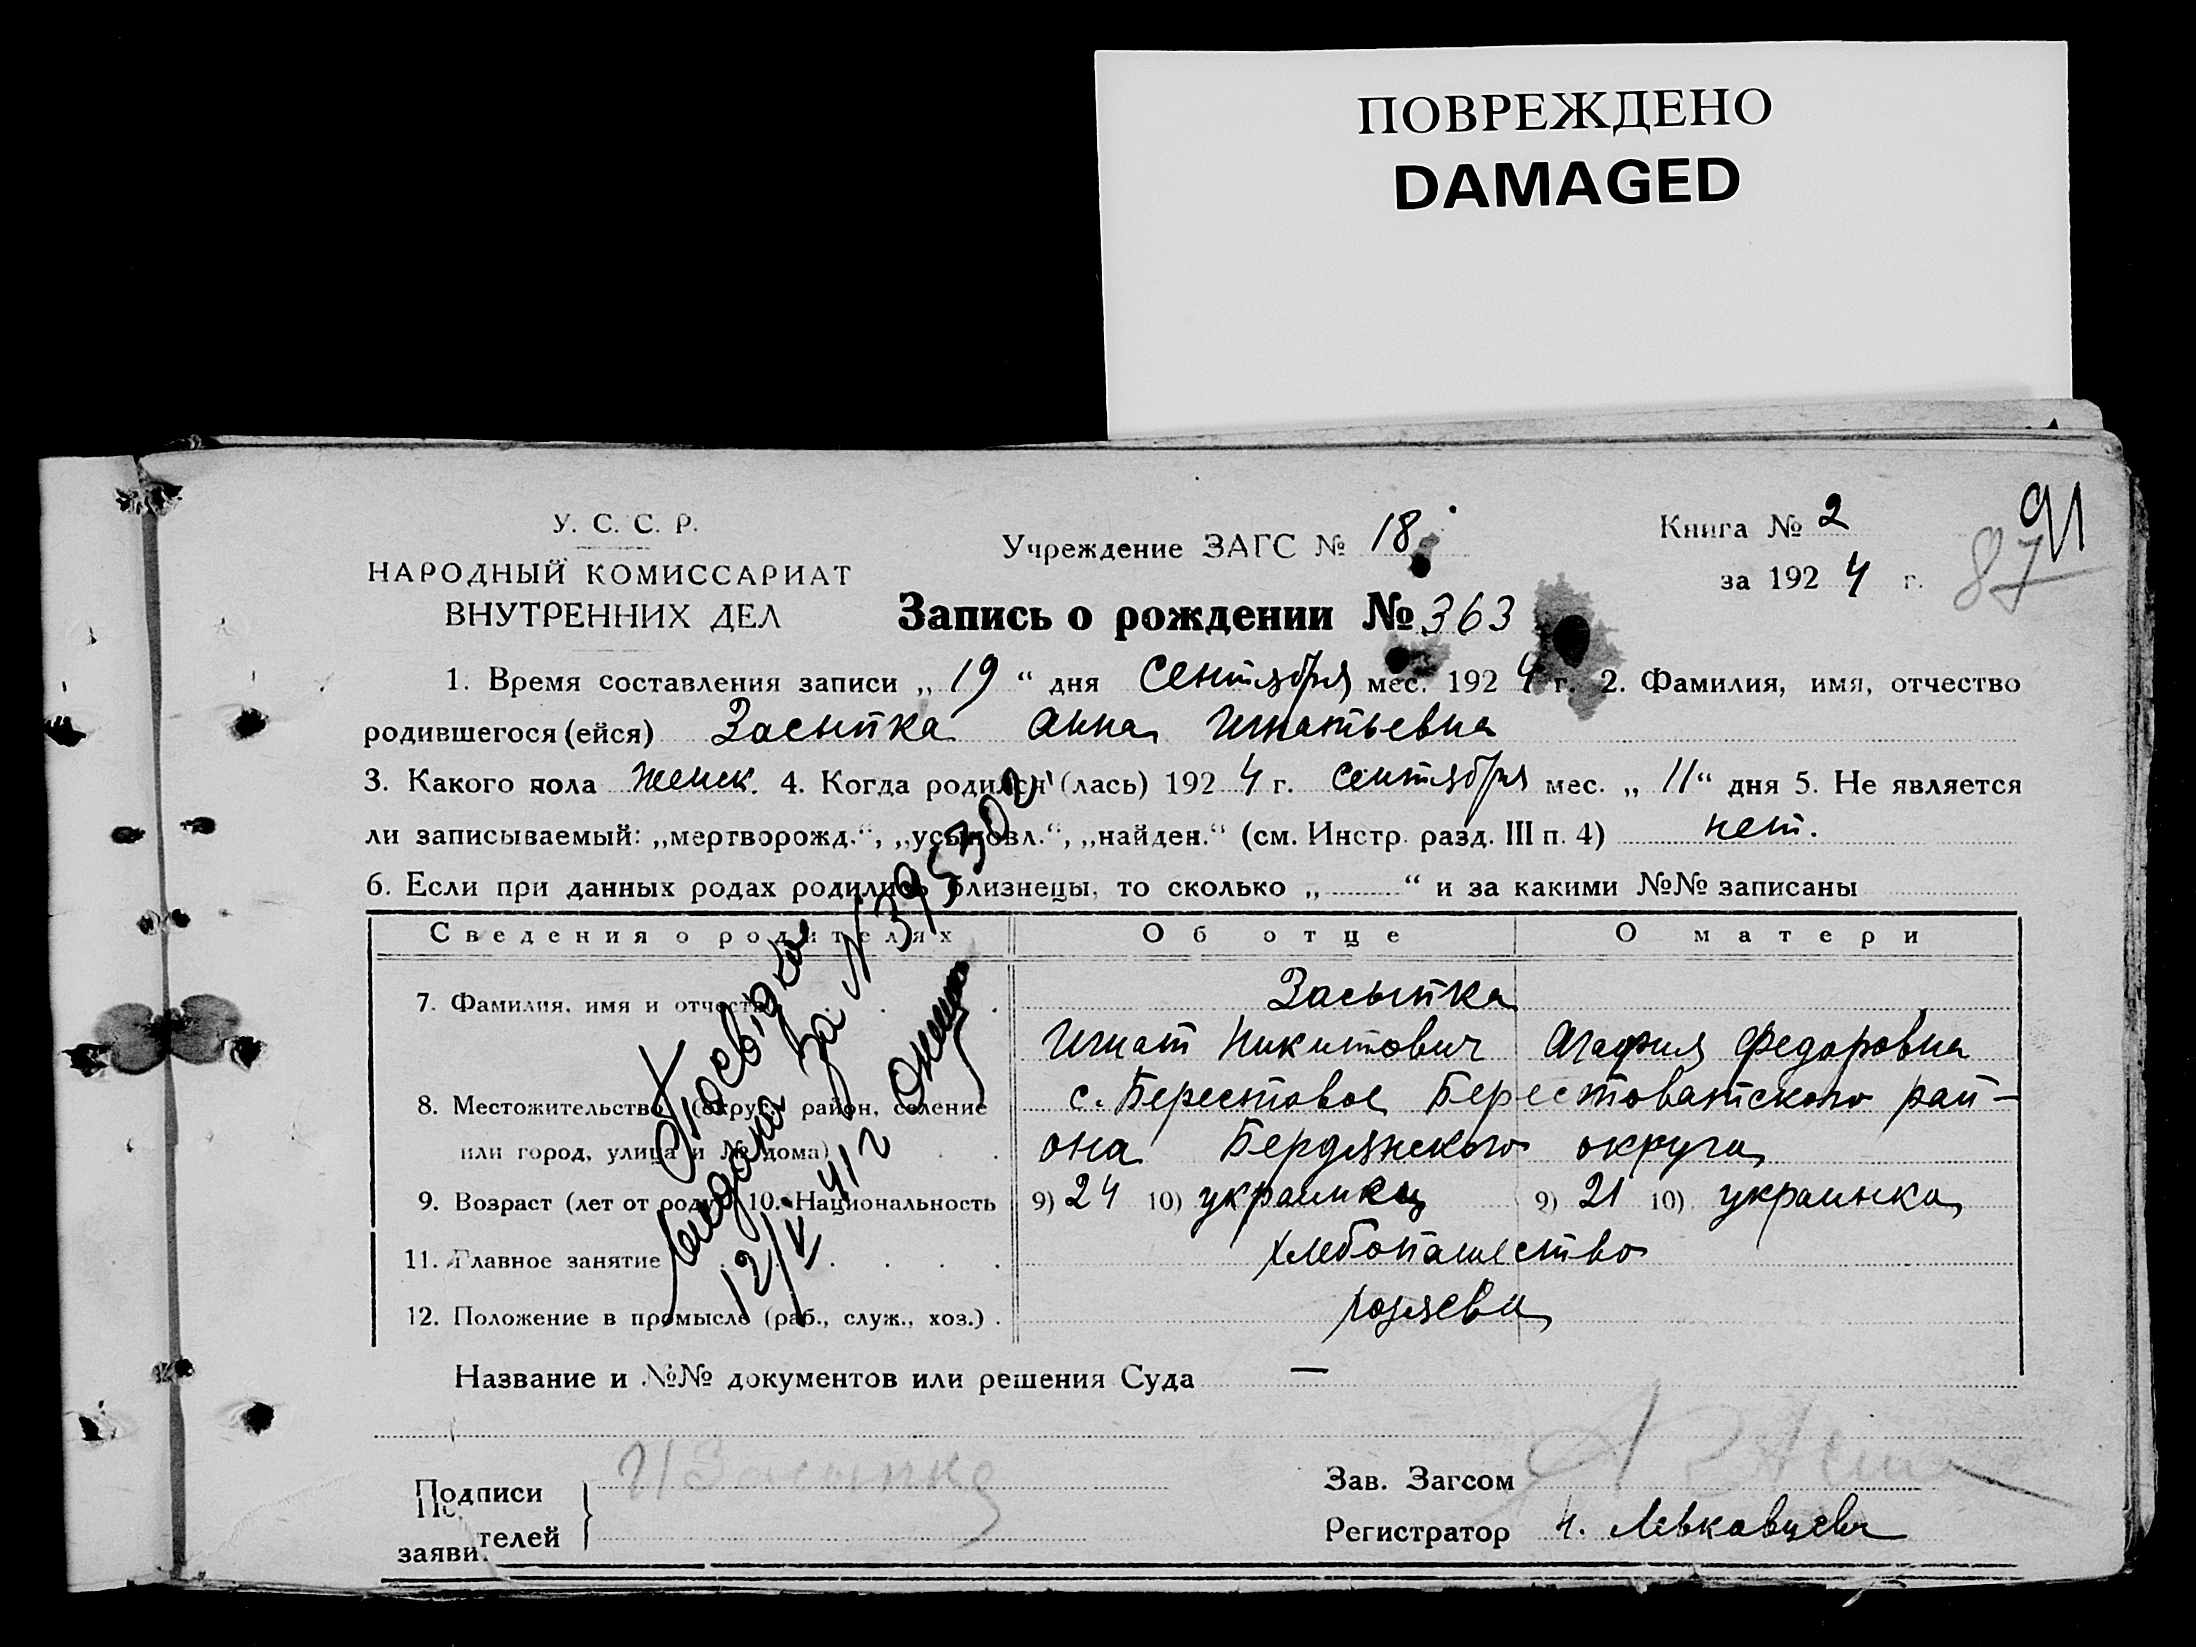 ПОВРЕЖДЕНО
DAMAGED
91
87
У. С. С. Р.
НАРОДНЫЙ КОМИССАРИАТ
ВНУТРЕННИХ ДЕЛ
Учреждение ЗАГС № 18
Книга № 2
за 192 4 г.
Запись о рождении № 363
1. Время составления записи „ 19 “ дня Сентября мес. 192 4 г. 2. Фамилия, имя, отчество
родившегося (ейся) Засыпка Анна Игнатьевна
3. Какого пола женск. 4. Когда родился (лась) 192 4 г. сентября мес. „ 11 “ дня 5. Не является
ли записываемый: „мертворожд.“, „усыновл.“, „найден.“ (см. Инстр. разд. III п. 4) нет.
6. Если при данных родах родились близнецы, то сколько „ “ и за какими №№ записаны
Сведения о родителях Об отце О матери
7. Фамилия, имя и отчество Засыпка
Игнат Никитович Агафия Федоровна
8. Местожительство (округ, район, селение с. Берестовое Берестоватского рай-
или город, улица и № дома) она Бердянского округа
9. Возраст (лет от роду) 10. Национальность 9) 24 10) украинец 9) 21 10) украинка
11. Главное занятие хлебопашество
12. Положение в промысле (раб., служ., хоз.) хозяева
видана за N
12/V 41 г
Название и №№ документов или решения Суда —
Подписи И Засыпка
заявителей
Зав. Загсом
Регистратор